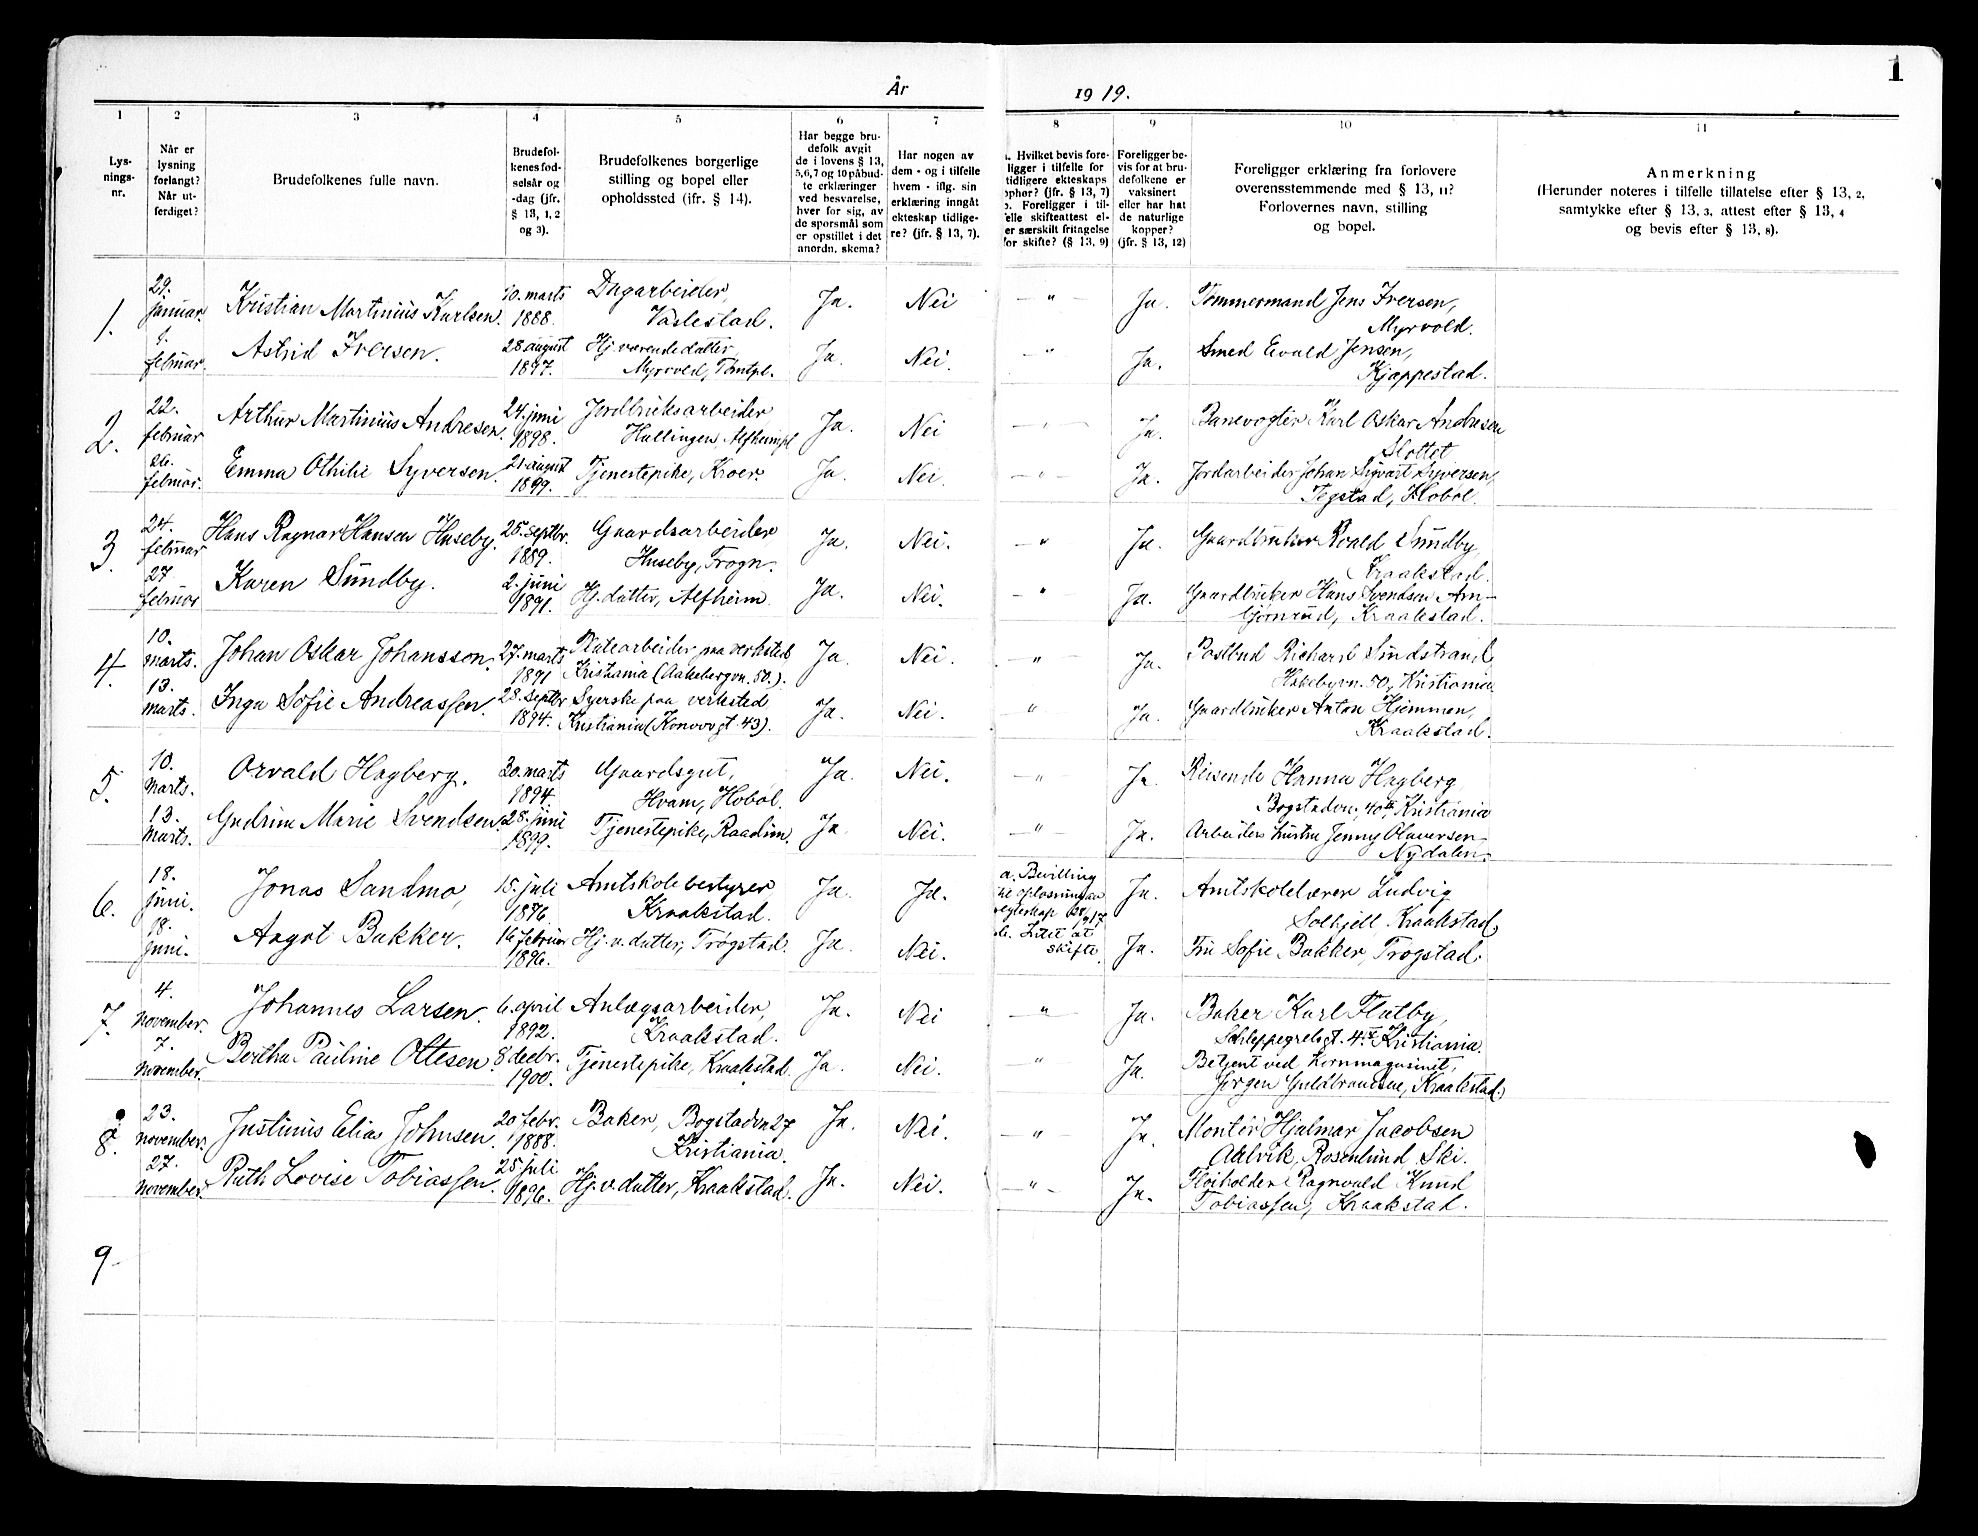 1
År 1919.
1
2
3
4
5
6
7
8
9
10
11
Lys-
nings-
nr.
Når er
lysning
forlangt?
Når ut-
ferdiget?
Brudefolkenes fulle navn.
Brudefol-
kenes fød-
selsår og
-dag (jfr.
§ 13, 1, 2
og 3).
Brudefolkenes borgerlige
stilling og bopel eller
opholdssted (jfr. § 14).
Har begge bru-
defolk avgit
de i lovens § 13,
5,6,7 og 10 påbud-
te erklæringer
ved besvarelse,
hver for sig, av
de spørsmål som
er opstillet i det
anordn. skema?
Har nogen av
dem - og i tilfelle
hvem - iflg. sin
erklæring inngått
ekteskap tidlige-
re? (jfr. § 13, 7).
. Hvilket bevis fore-
ligger i tilfelle for
tidligere ekteskaps
ophør? (jfr. § 13, 7)
. Foreligger i til-
felle skifteattest el-
er særskilt fritagelse
for skifte? (§ 13, 9)
Foreligger be-
vis for at bru-
defolkene er
vaksinert
eller har hat
de naturlige
kopper?
(jfr. § 13, 12)
Foreligger erklæring fra forlovere
overensstemmende med § 13, 11?
Forlovernes navn, stilling
og bopel.
Anmerkning
(Herunder noteres i tilfelle tillatelse efter § 13, 2,
samtykke efter § 13, 3, attest efter § 13, 4
og bevis efter § 13, 8).
1.
29.
januar.
Kristian Martinius Karlsen.
10. marts
1888.
Dagarbeider,
Vaslestad.
Ja.
Nei
"
Ja.
Tømmermand Jens Iversen,
Myrvold.
1.
februar.
Astrid Iversen.
28 august
1897.
Hj. værende datter,
Myrvold, Tomtpl.
Ja.
Nei.
"
Ja.
Smed Evald Jensen,
Kjappestad.
2.
22.
februar
Arthur Martinius Andresen.
24. juni
1898.
Jordbruksarbeider
Hallingen Alfheimpl
Ja.
Nei
"
Ja.
Banevogter Karl Oskar Andresen
Slottet
26.
februar.
Emma Othilie Syversen.
21. august
1899.
Tjenestepike, Kroer.
Ja.
Nei.
"
Ja.
Jordarbeider Johan Sigvart Syversen,
Tegstad, Hobøl.
3
24.
februar
Hans Ragnar Hansen Huseby.
25. septbr.
1889.
Gaardsarbeider
Huseby, Frogn.
Ja.
Nei.
"
Ja.
Gaardbruker Roald Sundby,
Kraakstad.
27
februar
Karen Sundby.
2. juni
1891.
Hj. datter, Alfheim.
Ja.
Nei.
"
Ja.
Gaardbruker Hans Svendsen Arn-
bjørnrud, Kraakstad.
4.
10.
marts.
Johan Oskar Johansson.
27. marts
1891
Platearbeider paa verksted
Kristiania (Aakebergvn. 50.).
Ja.
Nei.
"
Ja.
Postbud Richard Sundstrand
Hakebyvn. 50, Kristiania
13.
marts.
Inga Sofie Andreassen.
28. septbr
1894.
Syerske paa verksted
Kristiania (Konowsgt. 43).
Ja.
Nei.
"
Ja.
Gaardbruker Anton Hjemmen,
Kraakstad.
5.
10.
marts.
Orvald Hagberg.
30. marts
1894.
Gaardsgut,
Hvam, Hobøl.
Ja.
Nei.
"
Ja.
Reisende Hanna Hagberg
Bogstadvn. 40 II, Kristiania
13.
marts.
Gudrun Marie Svendsen.
28. juni
1899.
Tjenestepike, Raadim.
Ja.
Nei.
"
Ja.
Arbeiders hustru Jenny Olaversen-
Nydalen.
6.
18.
juni.
Jonas Sandmo,
15. juli
1876
Amtskolebestyrer
Kraakstad.
Ja.
Ja.
a. Bevilling
til opløsning av
egteskap
1917
b. Intet at
skifte.
Ja.
Amtskolelærer Ludvig
Solhjell. Kraakstad.
18.
juni.
Angot Bakker.
16 februar
1896.
Hj. v. datter, Trøgstad.
Ja.
Nei.
Ja.
Fru Sofie Bakker, Trøgstad.
7.
4.
november.
Johannes Larsen.
6. april
1892.
Anlægsarbeider,
Kraakstad.
Ja.
Nei
"
Ja.
Baker Karl Flatby,
Schleppegrelsgt. 4 II Kristiania.
7.
november.
Bertha Pauline Ottesen
8 decbr.
1900.
Tjenestepike, Kraakstad.
Ja.
Nei.
"
Ja.
Betjent ved kornmagasinet,
Jørgen Guldbrandsen, Kraakstad.
8.
23.
november.
Justinus Elias Johnsen.
20 febr.
1888.
Baker, Bogstadvn 27
Kristiania.
Ja.
Nei.
"
Ja.
Montør Hjalmar Jacobsen
Aalvik, Rosenlund Ski.
27.
november.
Ruth Lovise Tobiassen.
25 juli
1896.
Hj. v. datter, Kraakstad.
Ja.
Nei.
"
Ja.
Fløiholder Ragnvald Knud
Tobiassen, Kraakstad.
9